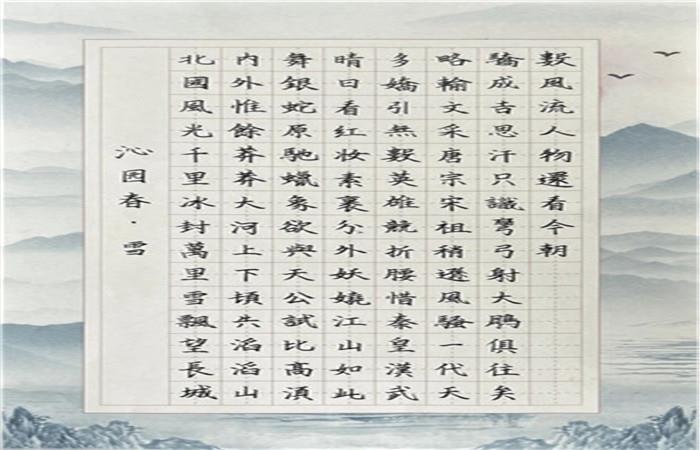 沁园春·雪
北國風光千里冰封萬里雪飄望長城
内外惟餘莽莽大河上下頓失滔滔山
舞銀蛇原馳蠟象欲與天公試比高須
晴日看红妆素裹分外妖嬈江山如此
多嬌引無數英雄競折腰惜秦皇漢武
略輸文采唐宗宋祖稍遜風騷一代天
驕成吉思汗只識彎弓射大鵰俱往矣
數風流人物還看今朝